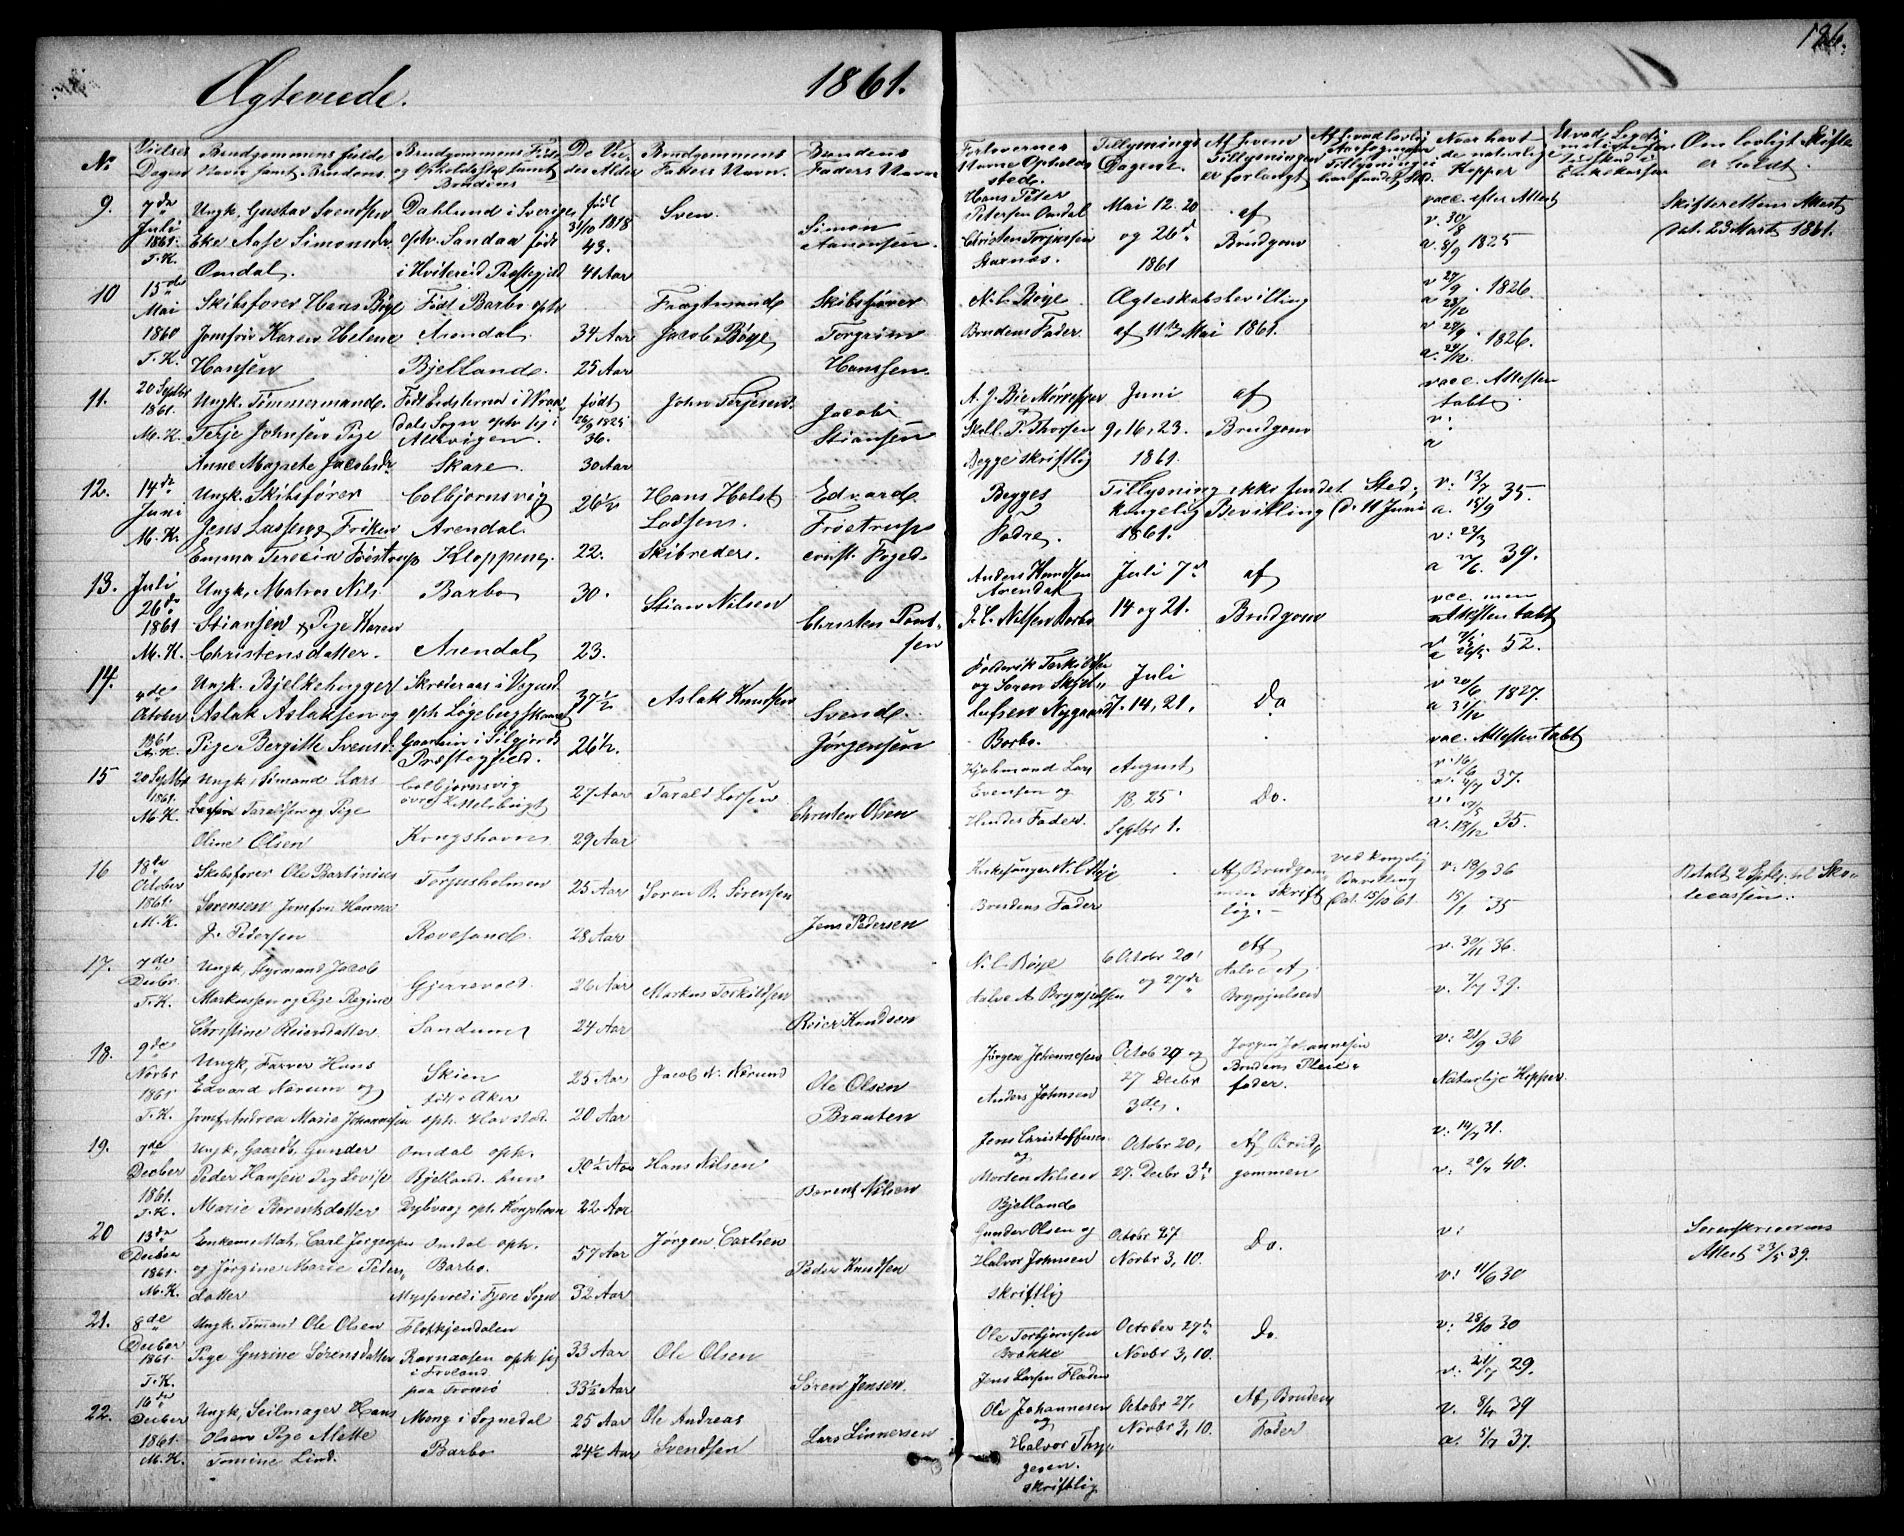 186.
Ægteviede. 1861.
No
Vielses Dagen
Brudgommens fulde Navn samt Brudens.
Brudgommens Føde og Opholdssted samt Brudens
De Viedes Alder
Brudgommens Faders Navn.
Brudens Faders Navn
Forlovernes Navne Opholdssted.
Tillysnings Dagene.
Af hvem Tillysningen er forlangt
Om lovligt Skifte er holdt.
9. 7de Juli 1861. T.K.
Ungk. Gustav Svendsen
Eke Aase Simonsdr.
Omdal.
Dahlund i Sverige,
oph. Sandaa født
i Hvitereid Præstegjeld
født 31/10 1818
43.
41 Aar
Sven.
Simon
Aanonsen.
Hans Peter
Petersen Omdal
Christen Torjussen
Mai 12. 20
og 26d
1861
af
Brudgom
vacc. efter Attest
v. 30/8
a. 8/9 1825
Skifterettens Attest
dat. 23 Marts 1861.
10 15de Mai 1860 T.K.
Skibsfører Hans Bøye
Jomfru Karen Helene
Hansen
Født Barbo oph
Arendal.
Bjelland.
34 Aar
25 Aar
Fragtmand
Jacob Bøye
Skibsfører
Torgrim
Hanssen.
N. C. Bøye
Brudens Fader.
Ægteskabsbevilling
af 11te Mai 1861.
v 27/9 1826.
a 28/12
v 28/9 1826.
a. 29/12
11. 20 Septbr 1861. M.K.
Ungk. Tømmermand.
Terje Johnsen Pige
Anne Magrete Jacobsdr
Skare.
født
26/9 1825
36.
30 Aar
John Terjesen.
Jacob
Stiansen
P. Thorsen
Begge skriftlig
Juni
9, 16, 23.
1861.
af
Brudgom
vacc. Attesten
tabt
v.
a
12. 14de Juni M.K.
Ungk. Skibsfører
Emma Terecia Frøstrup
Colbjørnsvig
Arendal.
Kloppene,
26 1/2
22.
Hans Holst
Skibreder.
Edvard
Frøstrup
const. Foged.
Begges
Fadre.
Tillysning ikke fundet Sted,
kongelig Bevilling d. 11 Juni
1861.
v: 13/7
a. 15/9 35.
v: 22/3
a 27/6. 39.
13. Juli 26de 1861 M.K.
Ungk. Matros Nils
Stiansen & Pige Karen
Christensdatter.
Barbo
Arendal
30.
23.
Stian Nilsen
Christen Pontsen
Anders Knudsen
Arendal
J. C. Nilsen Barbo
Juli 7d
14 og 21.
af
Brudgom
vcc. men
Attesten tabt
v 7/5 52.
a 26/5
14. 4de October 1861 M.K.
Ungk. Bjelkehugger
Aslak Aslaksen og
Pige Bergitte Svensd.
Præstegjeld.
37 1/2
26 1/2.
Aslak Knudsen
Svend
Jørgensen
Barbo.
Juli
7. 14, 21,
Do
v 20/6 1827.
a 31/12
vac. Attesten tabt
15 20 Septbr 1861. M.K.
Ungk. Sømand Lars
Taraldsen og Pige
Oline Olsen
Colbjørnsvig
Kongshavn
27 Aar
29 Aar
Tarald Larsen
Christen Olsen
Lars
Evensen og
Hendes Fader
August
18. 25.
Septbr 1.
Do.
v. 16/6 37.
a. 4/7
v. 17/5 35.
a. 19/12
16 18de October 1861. M.K.
Skibsfører Ole Bartinius
Sørensen Jomfru Hanna
J. Pedersen
Torjusholmen
Revesand.
25 Aar
28 Aar
Søren B. Sørensen
Jens Pedersen
Kirkesanger N. C. Bøye
Brudens Fader
Af Brudgommen skriftlig.
ved Kongelig
Bevilling
Dat. 15/10 61.
v: 19/9 36
15/1 35
Betalt 2 Spdlr. til Skolecassen.
17. 7de Decbr. T.K.
Ungk. Styrmand Jacob
Markussen og Pige Regine
Christine Reiersdatter
Gjerrevold
Sandum
26 Aar
24 Aar
Markus Torkildsen
Reier Knudsen
N. C. Bøye
Aalve A. Brynjulfsen
6 Octobr 20
og 27de
Af
Aalve A.
Brynjulsen
v. 30/11 36.
v. 7/7 39.
18. 9de Novbr 1861 T.K.
Ungk, Farver Hans
Edvard Nørum og
Jomf. Andrea Marie Johannesen
Skien
født i Aker
oph. Havstad.
25 Aar
20 Aar
Jacob N. Nørum
Ole Olsen
Braaten
Jørgen Johannesen
Anders Johnsen
Octob 29 og
27 Decbr
3de.
Jørgen Johannesen
Brudens Pleiefader.
v: 21/9 36
Naturlige Kopper
19. 7de Decber 1861. T.K.
Ungk, Gaardb. Gunder
Peder Hansen Pig Lovise
Marie Berentsdatter
Omdal oph.
Bjelland. hun
Dybvaag oph. Kongshavn
30 1/2 Aar
22 Aar
Hans Nilsen
Berent Nilsen
Jens Christoffersen
og
Morten Nilsen
Bjelland
Octobr 20,
27. Decbr 3de
Af Brudgommen
v: 14/7 31.
v: 20/7 40.
20 13de Decbr 1861. M.K.
Enkem. Mat. Carl Jørgensen
og Jørgine Marie Petersdatter
Omdal oph.
Barbo.
i Fjere Sogn
57 Aar
32 Aar
Jørgen Carlsen
Peder Knudsen
Gunder Olsen og
Halvor Johnsen
skriftlig
Octobr 27
Novbr 3, 10.
Do.
v:
v: 11/6 30
Sorenskriverens
Attest 23/5 39.
21. 8de Decber 1861. T.K.
Ungk. Tømmd Ole Olsen
Pige Gurine Sørensdatter
Flotkjendalen
Ravnaasen oph sig
i Froland
paa Tromø
33 Aar
33 1/2 Aar
Ole Olsen
Søren Jensen.
Ole Torbjørnsen
Brække
Jens Larsen Fladen
October 27de
Novbr 3, 10.
Do.
v: 28/10 30
v: 21/7 29.
22. 16de Decber 1861. M.K.
Ungk, Seilmager Hans
Olsen Pige Mette
Tomine Lind.
Mong i Sognedal
Barbo
25 Aar
24 1/2 Aar
Ole Andreas
Svendsen
Lars Linnersen
Ole Johannesen
og
Halvor Thygesen.
skriftlig
Octobr 27,
Novbr 3, 10.
Af Brudens
Fader
v. 8/4 39
a. 5/7 37.